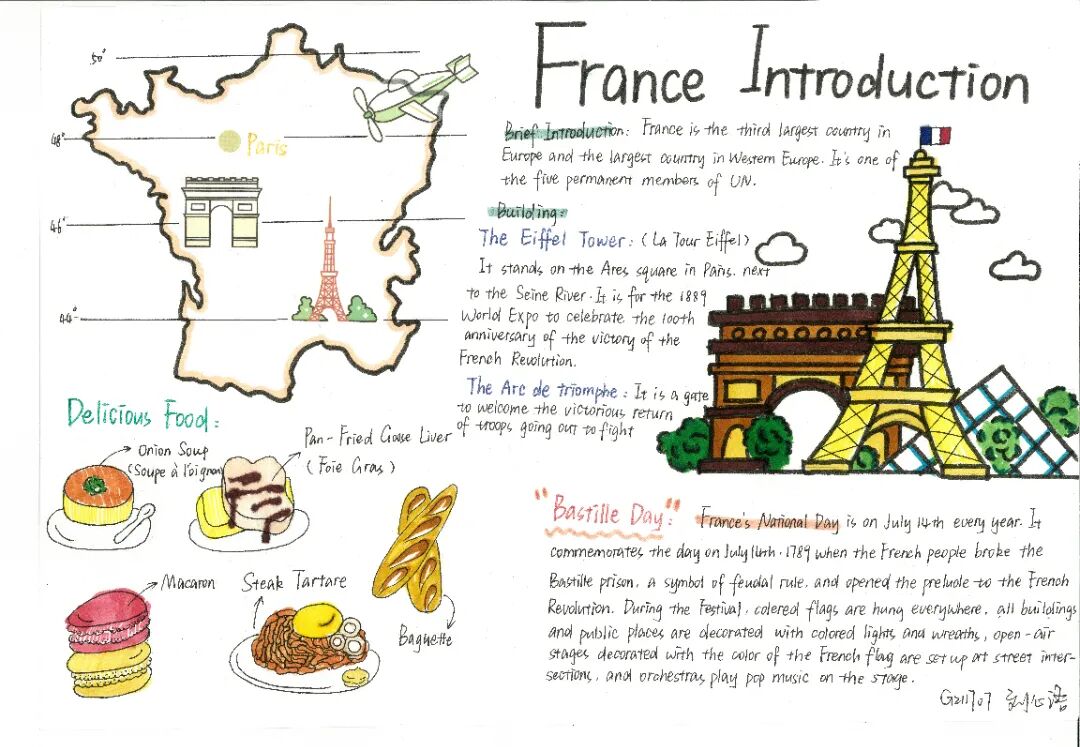 France Introduction
50°
48°
Paris
46°
44°
Brief Introduction: France is the third largest country in
Europe and the largest country in Western Europe. It's one of
the five permanent members of UN.
Building:
The Eiffel Tower: (La Tour Eiffel)
It stands on the Ares square in Paris. next
to the Seine River. It is for the 1889
World Expo to celebrate the 100th
anniversary of the victory of the
French Revolution.
The Arc de triomphe: It is a gate
to welcome the victorious return
of troops going out to fight
Delicious Food:
Onion Soup
(Soupe à l'oignon
Pan-Fried Goose Liver
(Foie Gras)
Macaron
Steak Tartare
Baguette
"Bastille Day": France's National Day is on July 14th every year. It
commemorates the day on July 14th. 1789 when the French people broke the
Bastille prison, a symbol of feudal rule, and opened the prelude to the French
Revolution. During the Festival, colered flags are hung everywhere, all buildings
and public places are decorated with colored lights and wreaths, open-air
stages decorated with the color of the French flag are set up at street inter-
sections, and orchestras play pop music on the stage.